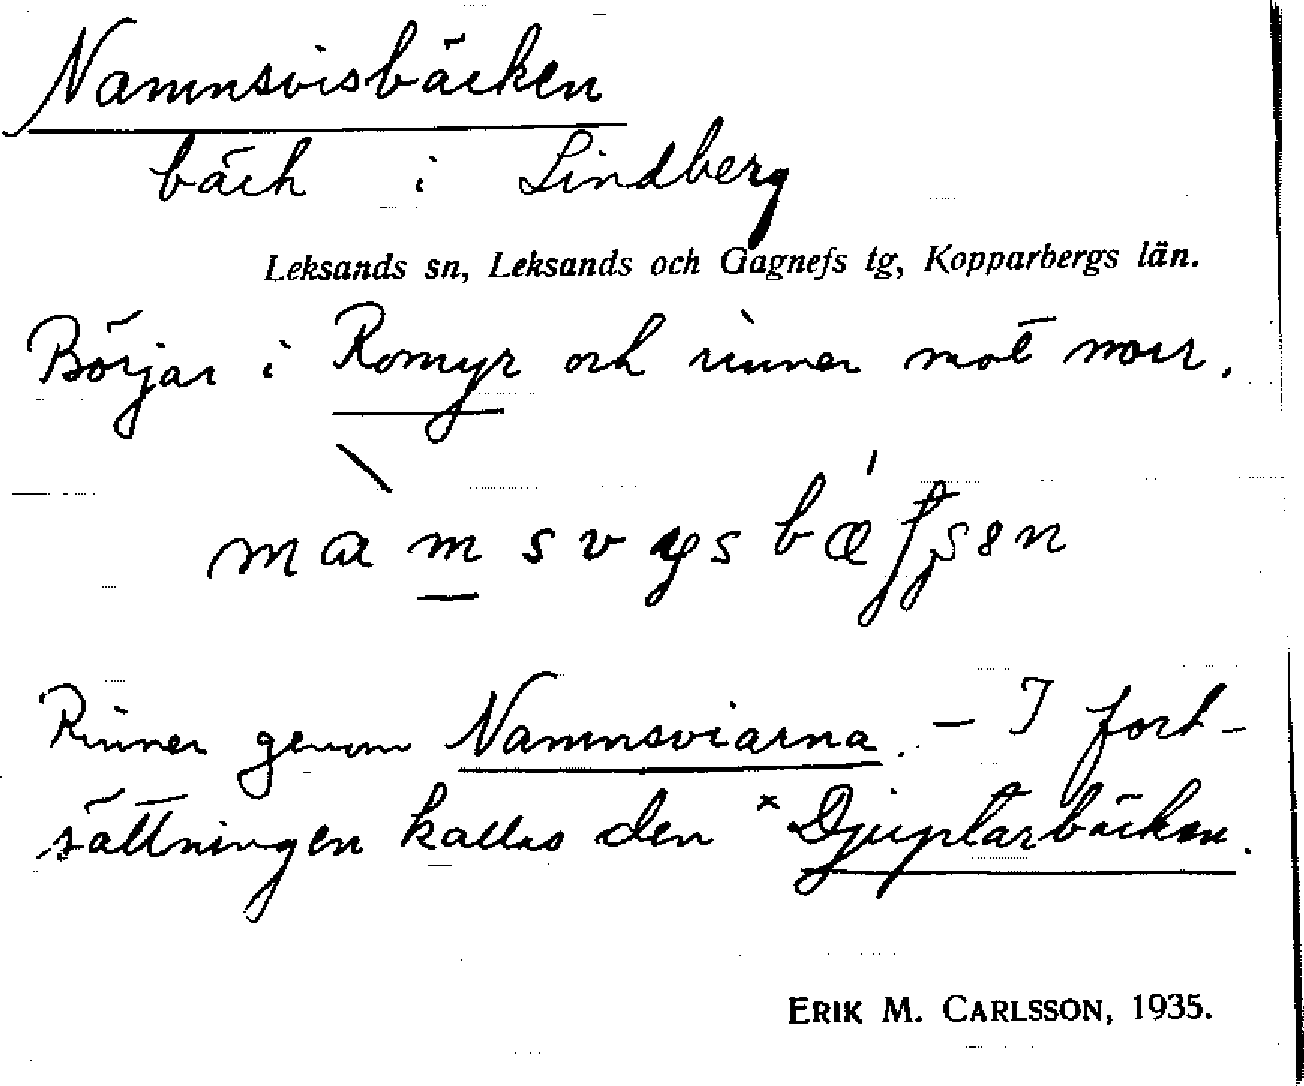 Namnsvisbäcken
bäck i Lindberg
Leksands sn, Leksands och Gagnefs tg, Kopparbergs län.
Börjar i Romyr och rinner mot norr.
Rinner genom Namnsviarna. – I fort-
sättningen kallas den × Djuptarbäcken.
ERIK M. CARLSSON, 1935.